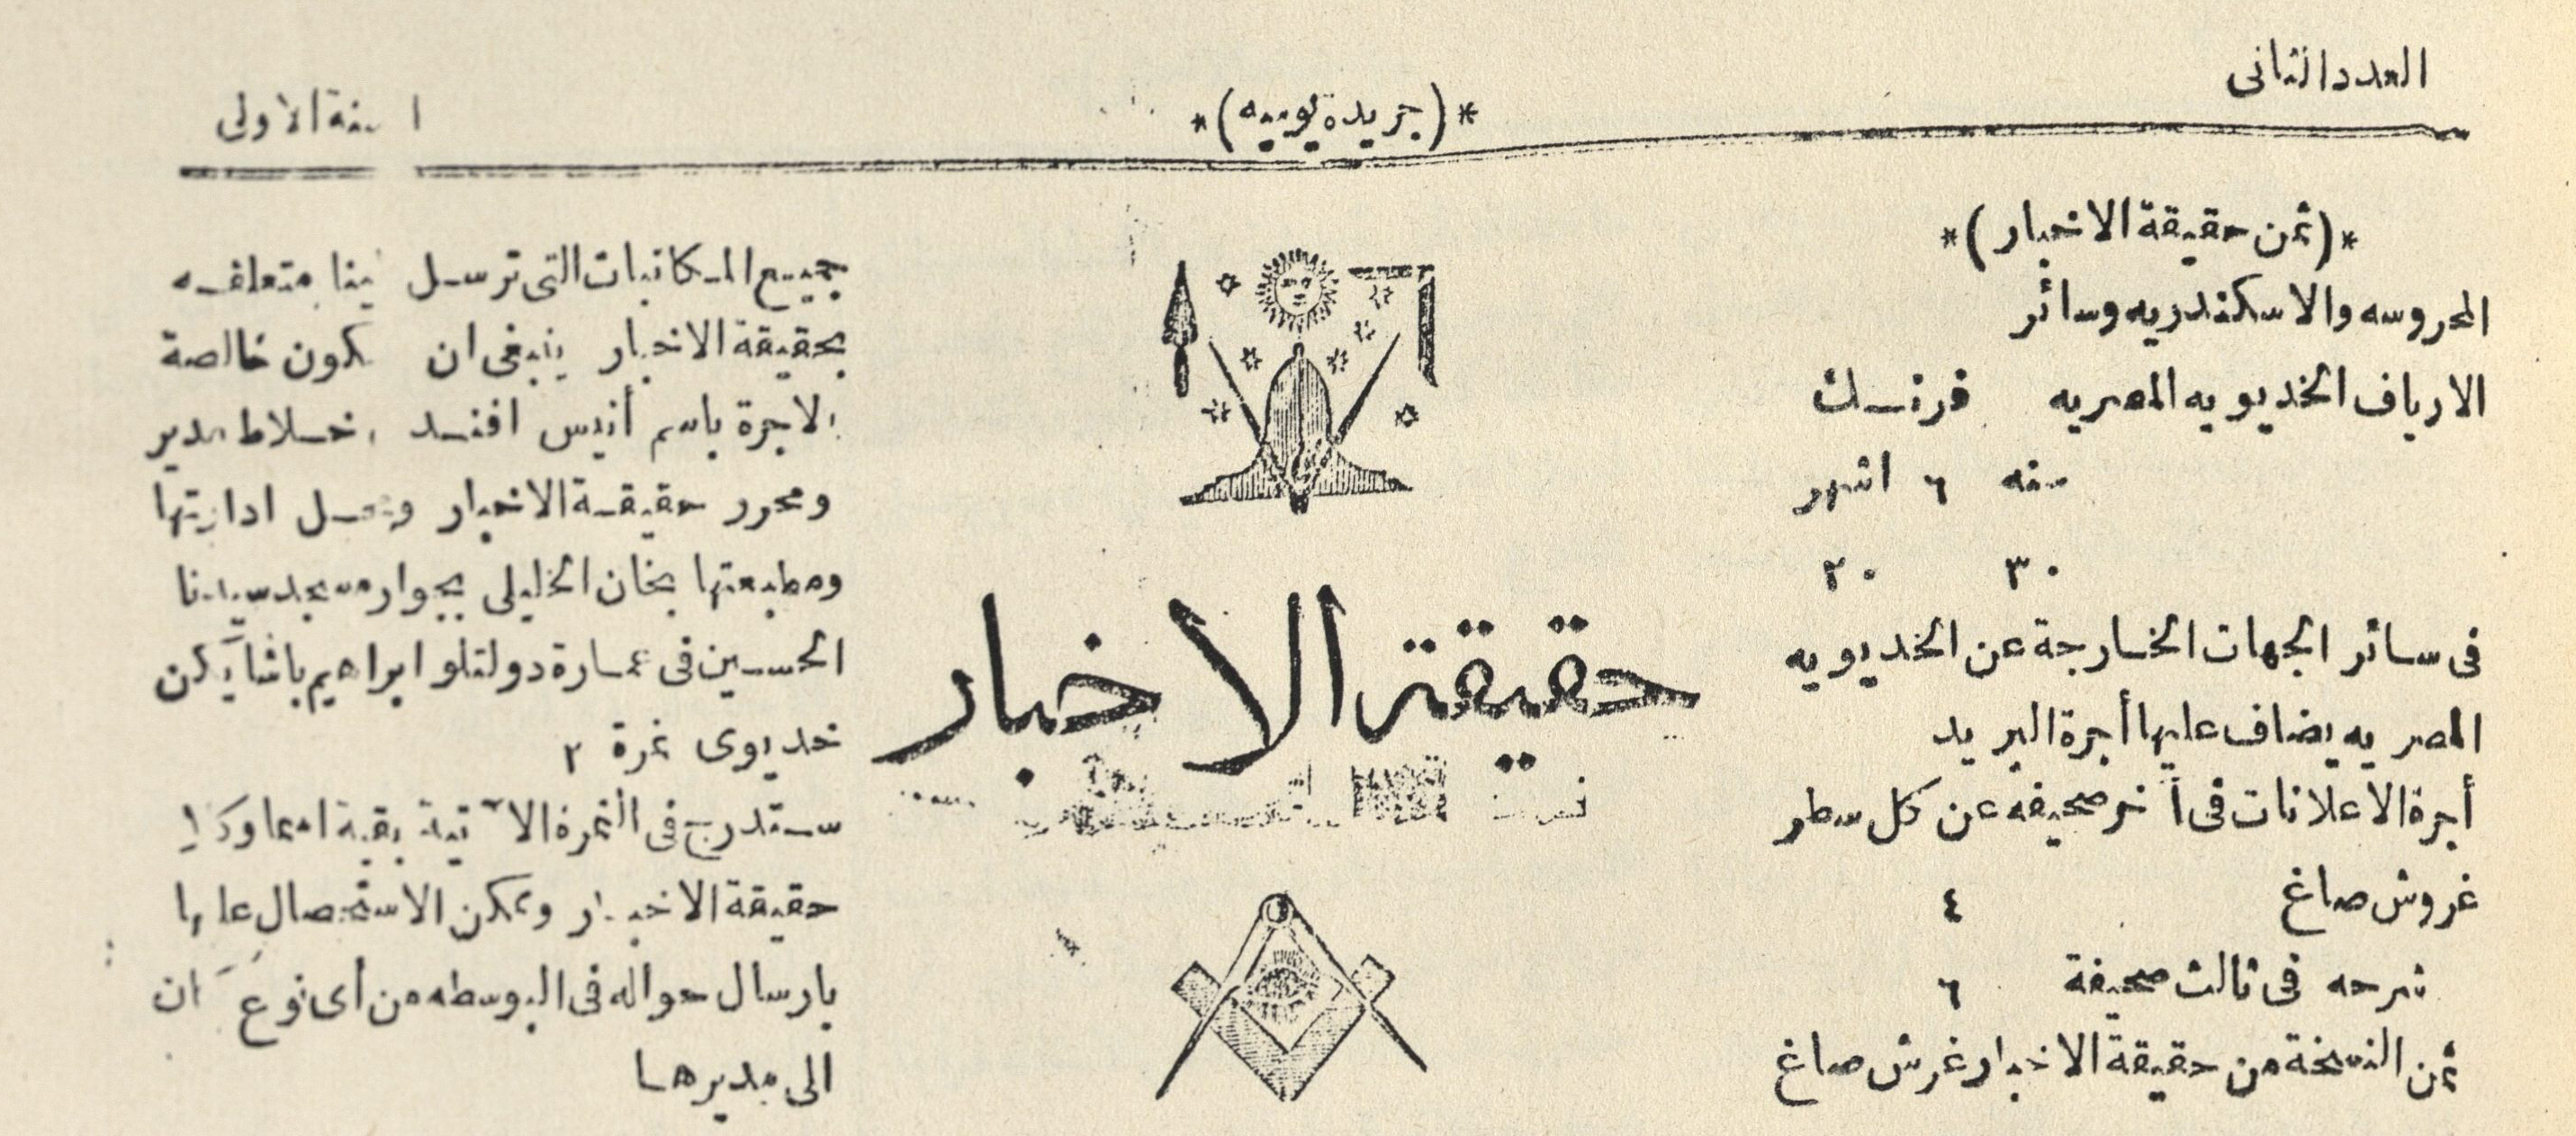 العدد الثانى
*(جريدة يوميه)*
السنة الاولى
*(ثمن حقيقة الاخبار)*
المحروسه والاسكندريه وسائر
الارياف الخديويه المصريه فرنك
سنه ٦ اشهر
٣٠ ٢٠
فى سائر الجهات الخارجة عن الخديويه
المصريه يضاف عليها أجرة البريد
أجرة الاعلانات فى آخر صحيفه عن كل سطر
غروش صاغ ٤
شرحه فى ثالث صحيفة ٦
ثمن النسخة من حقيقة الاخبار غرش صاغ
حقيقة الاخبار
جميع المكاتبات التى ترسل الينا متعلقه
بحقيقة الاخبار ينبغى ان تكون خالصة
الاجرة باسم أنيس افندى خلاط مدير
ومحرر حقيقة الاخبار ومحل ادارتها
ومطبعتها بخان الخليلى بجوار مسجد سيدنا
الحسين فى عمارة دولتلو ابراهيم باشا يكن
خديوى نمرة ٢
ستدرج فى النمرة الآتية بقية اسما وكلا
حقيقة الاخبار ويمكن الاستحصال عليها
بارسال حواله فى البوسطه من أى نوع كان
الى مديرها